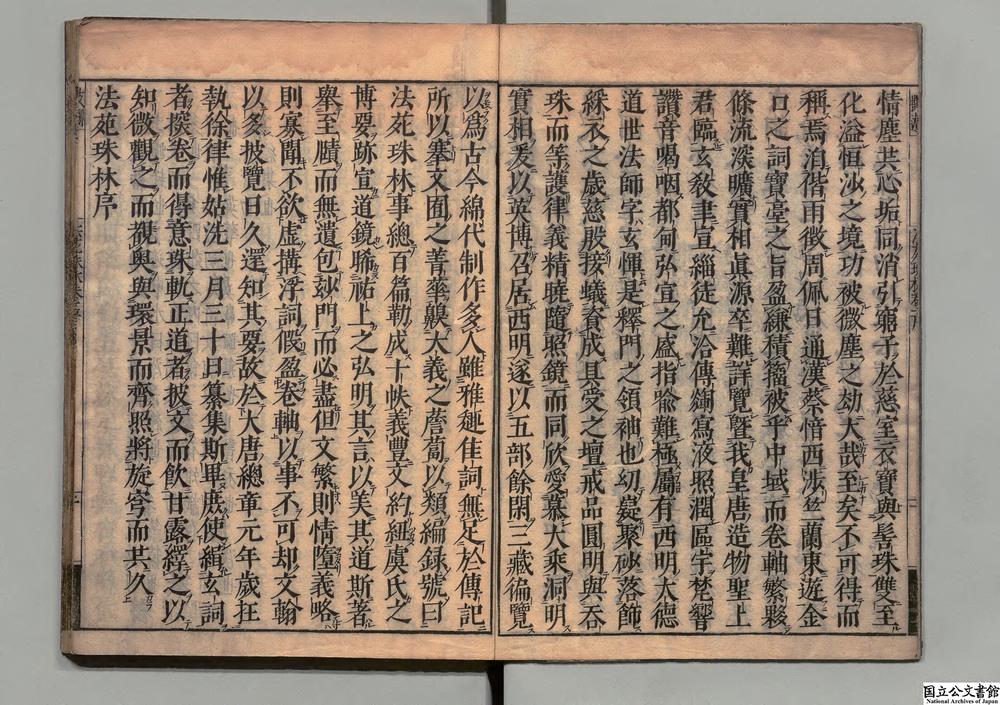 情塵共心垢同消引窮子於慈室衣寶與髻珠雙至
化溢恒沙之境功被微塵之劫大哉至矣不可得而
稱焉洎偕雨徵周佩日通漢蔡愔西涉竺蘭東遊金
口之詞寶臺之旨盈縑積籀被乎中域而卷軸繁夥
條流深曠實相眞源卒難詳覽暨我皇唐造物聖上
君臨玄敎聿宣緇徒允洽傳綱寫液照潤區宇梵響
讚音喝咽都甸弘宣之盛指喩難極屬有西明大德
道世法師字玄惲是釋門之領袖也幼嶷聚砂落飾
綵衣之歲慈殷接蟻資成具受之壇戒品圓明與吞
珠而等護律義精曉隨照鏡而同欣愛慕大乘洞明
實相爰以英博召居西明遂以五部餘閑三藏徧覽
以爲古今綿代制作多人雖雅趣佳詞無足於傳記
所以搴文囿之菁華嗅大義之薝蔔以類編錄號曰
法苑珠林事總百篇勒成十帙義豐文約紐虞氏之
博要跡宣道鏡晞祐上之弘明其言以美其道斯著
舉至賾而無遺包妙門而必盡但文繁則情墮義略
則寡聞不欲虛搆浮詞假盈卷軸以事不可却文翰
以多披覽日久還知其要故於大唐總章元年歲在
執徐律惟姑洗三月三十日纂集斯畢庶使緝玄詞
者探卷而得意珠軌正道者披文而飮甘露繹之以
知微觀之而覩奧與環景而齊照將旋穹而共久
法苑珠林序
国立公文書館
National Archives of Japan